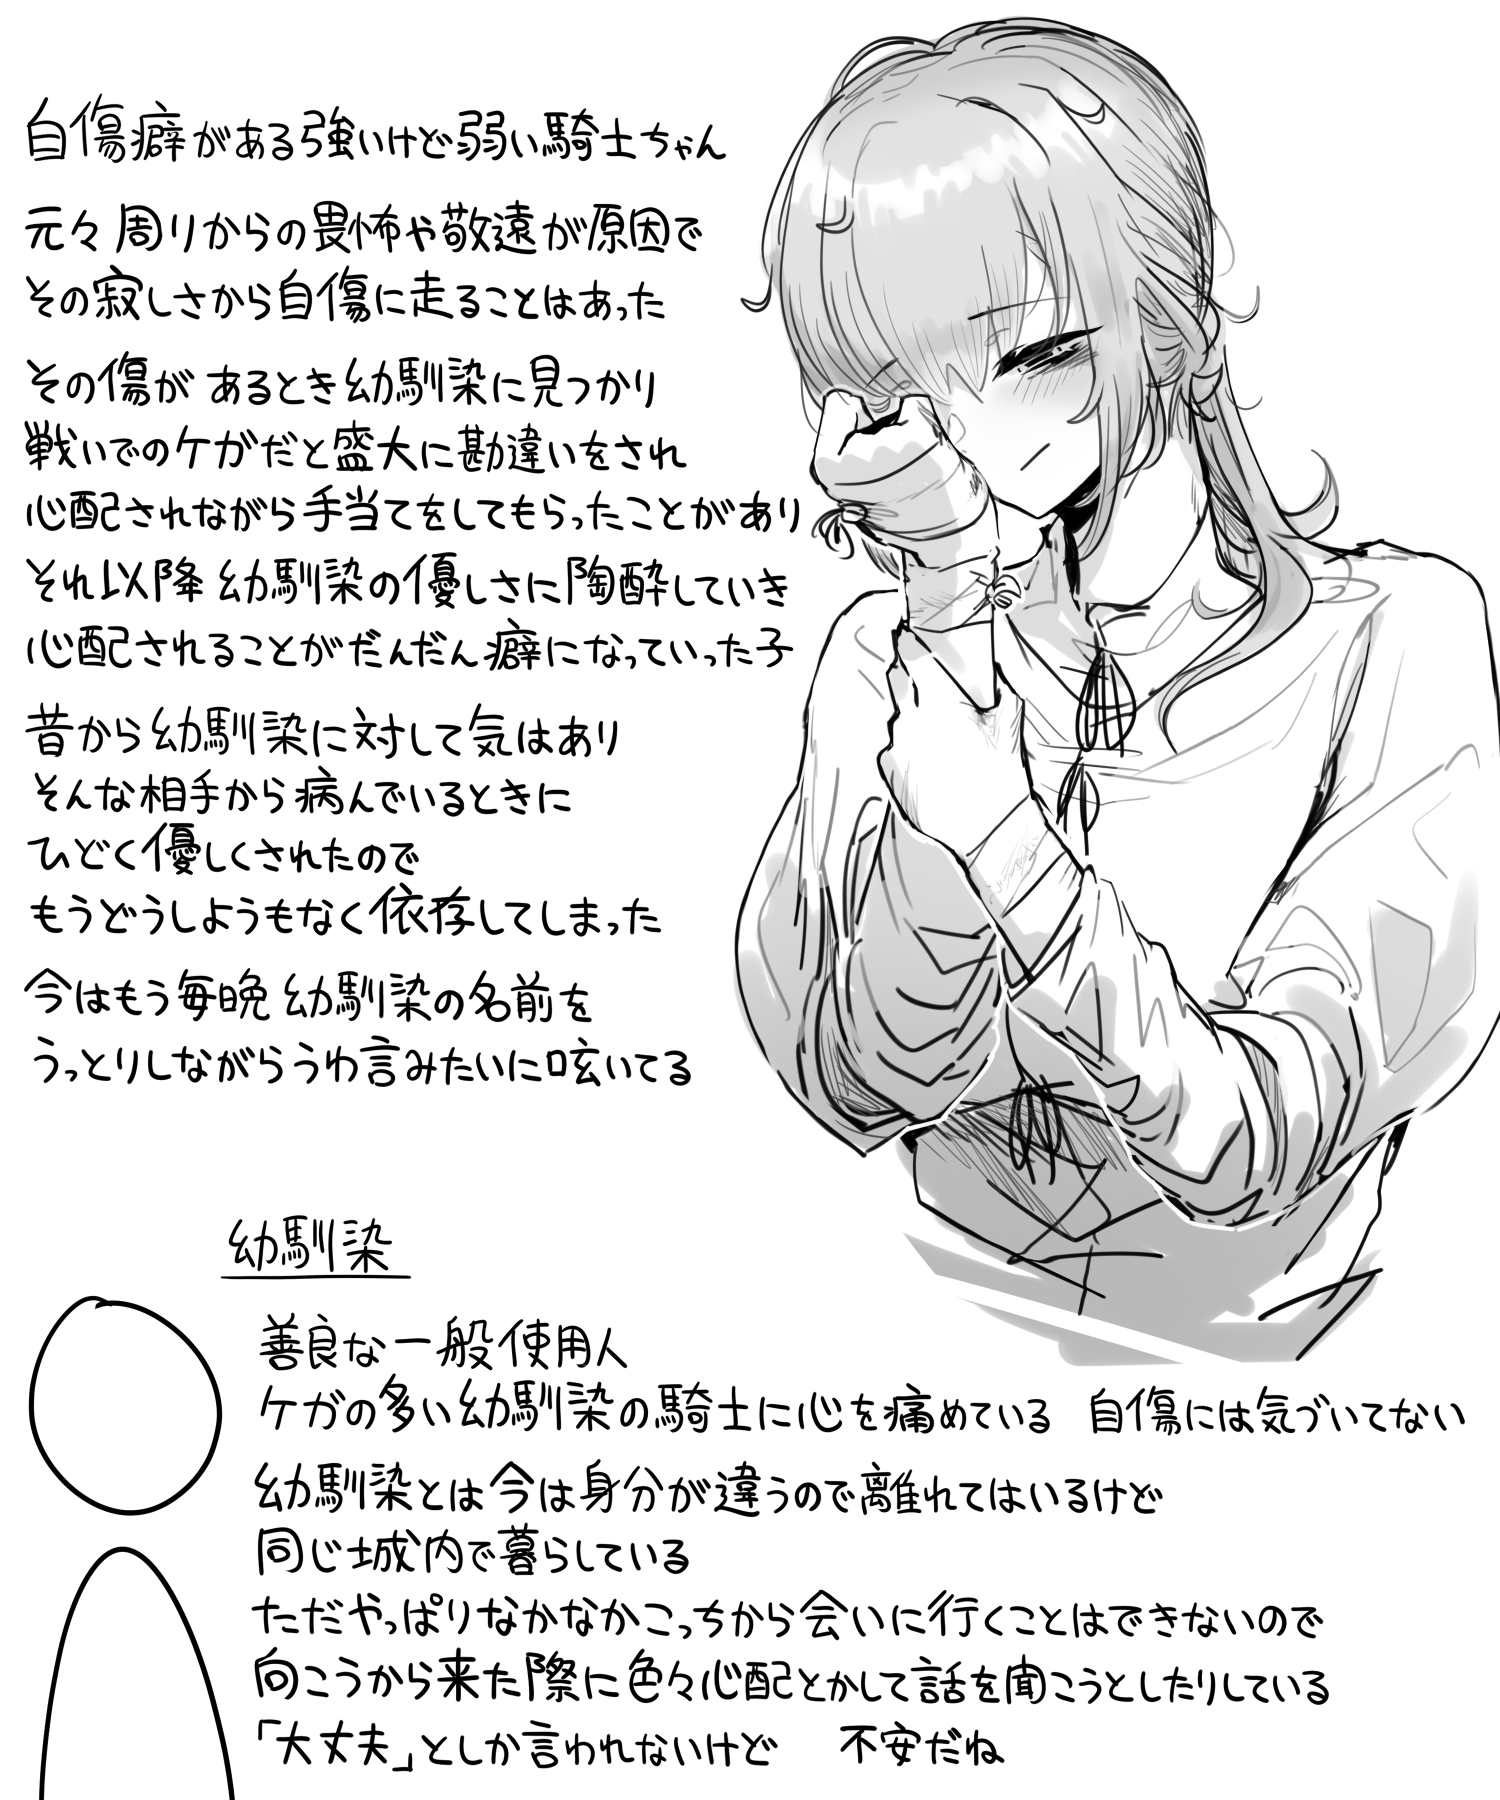 自傷癖がある強いけど弱い騎士ちゃん
元々周りからの畏怖や敬遠が原因で
その寂しさから自傷に走ることはあった
その傷があるとき幼馴染に見つかり
戦いでのケガだと盛大に勘違いをされ
心配されながら手当てをしてもらったことがあり
それ以降幼馴染の優しさに陶酔していき
心配されることがだんだん癖になっていった子
昔から幼馴染に対して気はあり
そんな相手から病んでいるときに
ひどく優しくされたので
もうどうしようもなく依存してしまった
今はもう毎晩幼馴染の名前を
うっとりしながらうわ言みたいに呟いてる
幼馴染
善良な一般使用人
ケガの多い幼馴染の騎士に心を痛めている 自傷には気づいてない
幼馴染とは今は身分が違うので離れてはいるけど
同じ城内で暮らしている
ただやっぱりなかなかこっちから会いに行くことはできないので
向こうから来た際に色々心配とかして話を聞こうとしたりしている
「大丈夫」としか言われないけど 不安だね